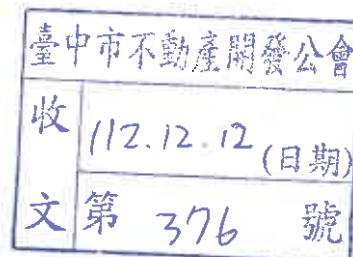 臺中市不動產開發公會
收 112.12.12 (日期)
文 第 376 號